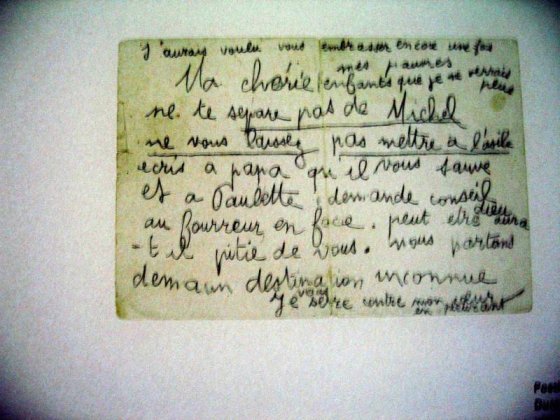 J'aurais voulu vous embrasser encore une fois
mes pauvres
Ma chérie enfants que je ne verrais plus
ne te sépare pas de Michel
ne vous laissez pas mettre a l'asile
ecris à papa qu'il vous sauve
et a Paulette, demande conseil
au fourreur en face. peut etre dieu aura
-t il pitié de vous. nous partons
demain destination inconnue
Je vous serre contre mon cœur
en pleurant